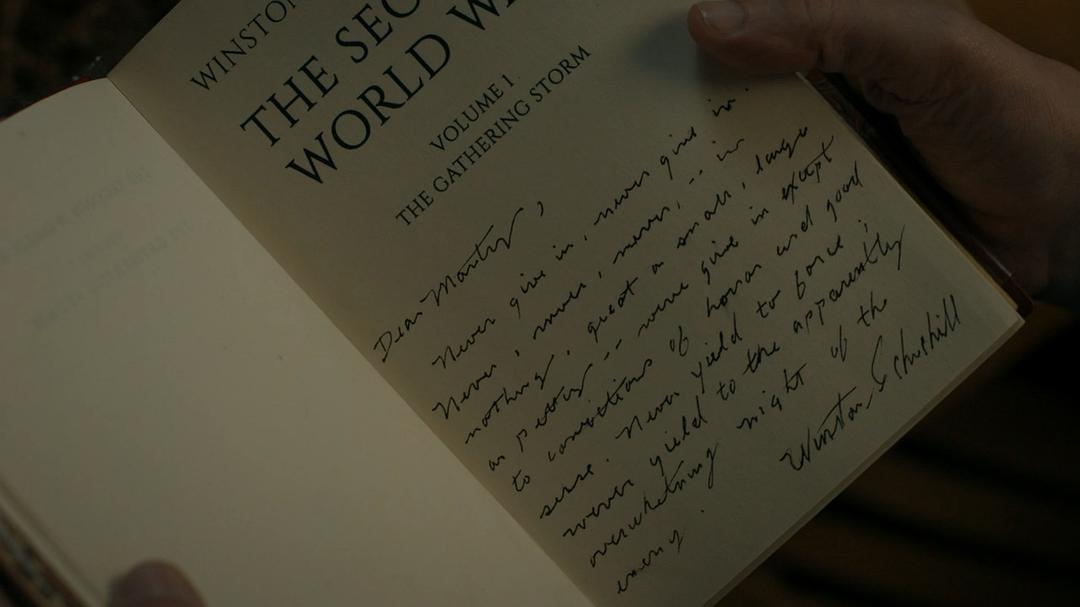 WINSTON
THE SEC
WORLD W
VOLUME I
THE GATHERING STORM
Dear Marty,
Never give in, never give in.
Never, never, never, -- in
nothing, great or small, large
or petty -- never give in except
to convictions of honor and good
sense. Never yield to force;
never yield to the apparently
overwhelming might of the
enemy.
Winston S Churchill